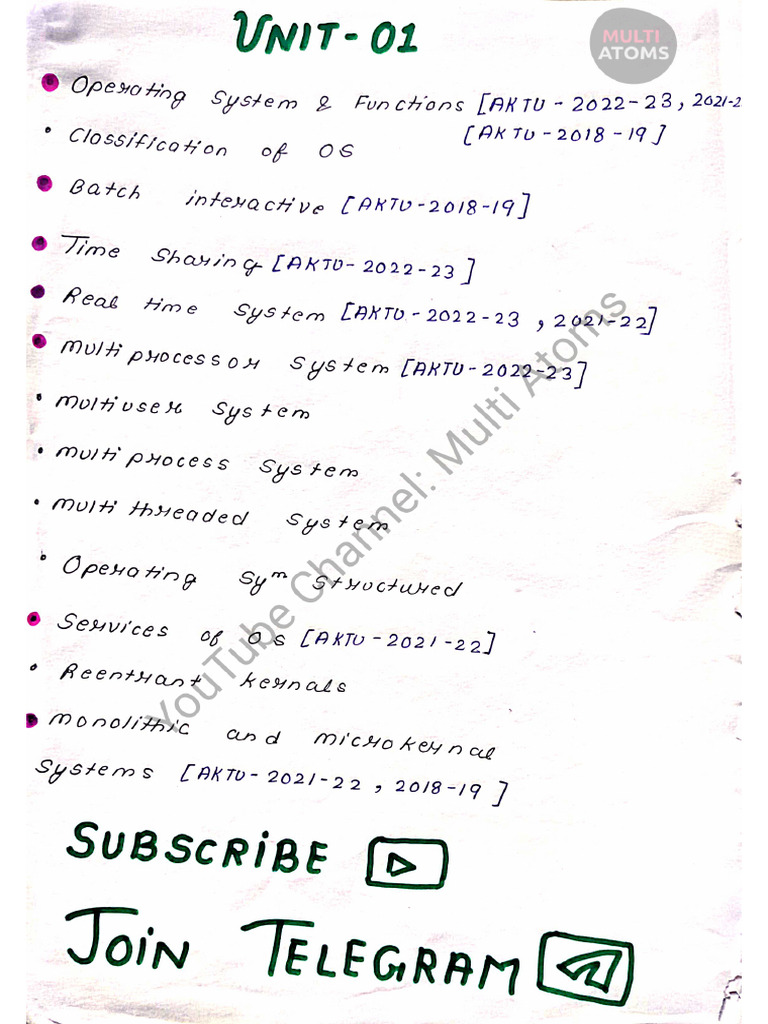 UNIT-01
MULTI
ATOMS
Operating System & Functions [AKTU - 2022-23, 2021-2
[AKTU-2018-19]
• Classification of OS
Batch interactive [AKTU-2018-19]
Time Sharing [AKTU-2022-23]
Real time System [AKTU-2022-23, 2021-22]
multiprocessor System [AKTU-2022-23]
• multiuser System
• multiprocess System
• multithreaded System
• Operating Sym Structured
Services of OS [AKTU-2021-22]
• Reentrant Kernals
monolithic and microkernal
Systems [AKTU-2021-22, 2018-19]
YouTube Channel: Multi Atoms
SUBSCRIBE
JOIN TELEGRAM